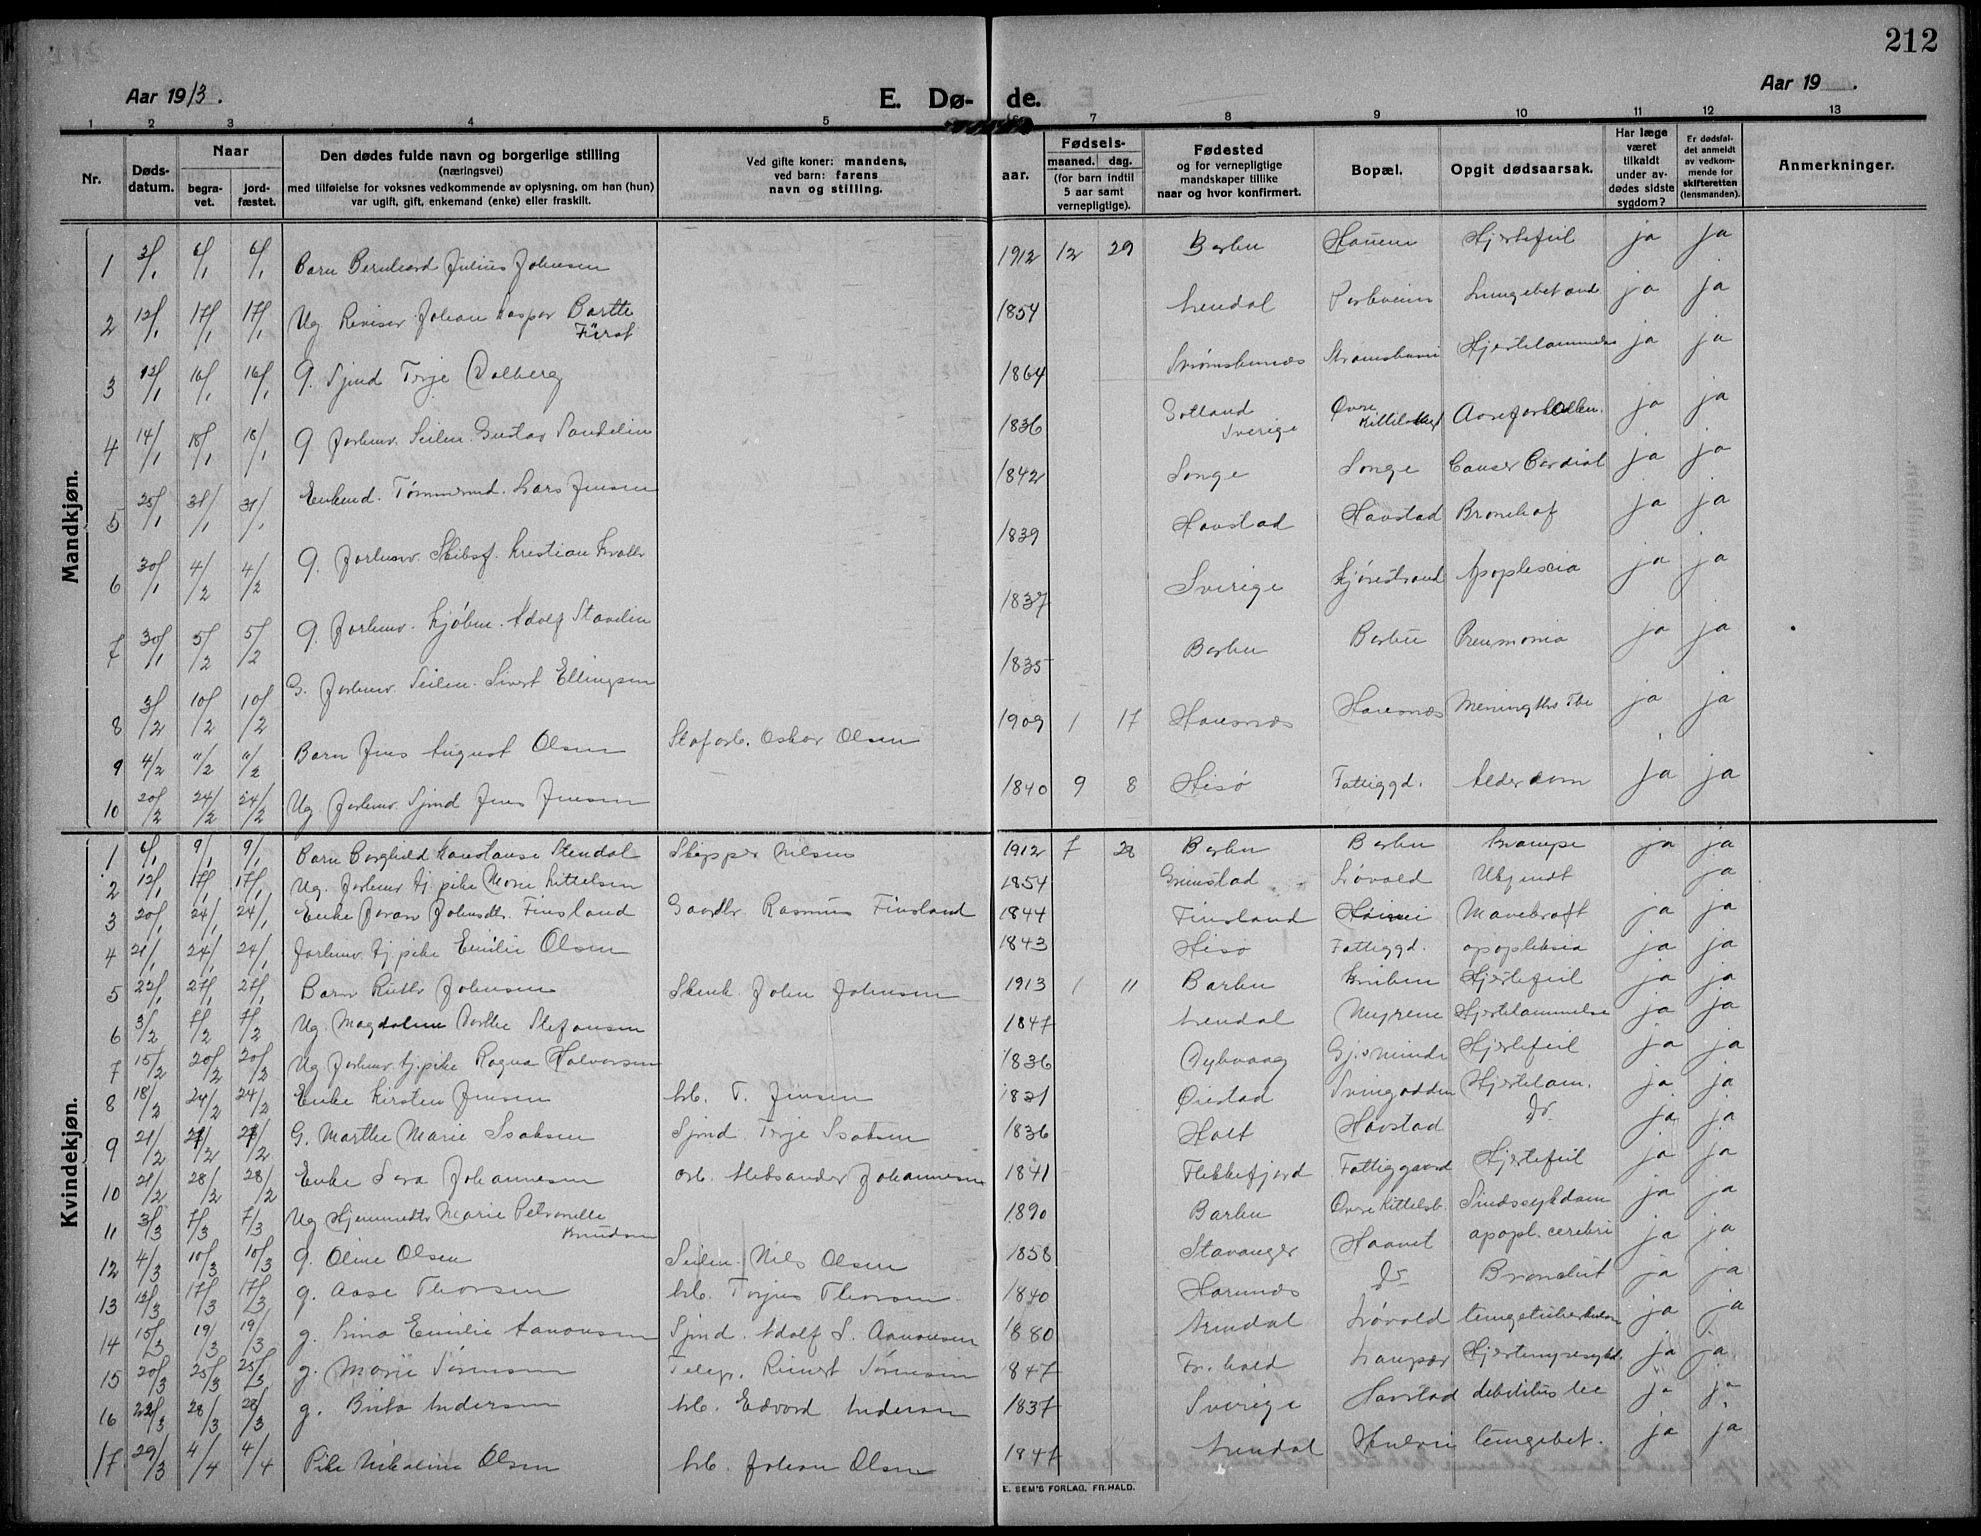 212
Aar 1913.
E. Dø- de.
Aar 19 .
1 2 3 4 5 6 7 8 9 10 11 12 13
Nr.
Døds-datum.
Naar
begra-vet.
jord-fæstet.
Den dødes fulde navn og borgerlige stilling
(næringsvei)
med tilføielse for voksnes vedkommende av oplysning, om han (hun)
var ugift, gift, enkemand (enke) eller fraskilt.
Ved gifte koner: mandens,
ved barn: farens
navn og stilling.
Fødsels-
aar.
maaned. dag.
(for barn indtil
5 aar samt
vernepligtige).
Fødested
og for vernepligtige
mandskaper tillike
naar og hvor konfirmert.
Bopæl.
Opgit dødsaarsak.
Har læge
været
tilkaldt
under av-
dødes sidste
sygdom?
Er dødsfal-
det anmeldt
av vedkom-
mende for
skifteretten
(lensmanden).
Anmerkninger.
Mandkjøn.
1 3/1 6/1 6/1 Barn Bernhard Julius Johnsen 1912 12 29 Barbu Hjertefeil ja ja
2 12/1 17/1 17/1 Ug Revisor Johan Kasper Barthe Fürst 1854 Arendal Parkveien Lungebetænd ja ja
3 12/1 16/1 16/1 G. Sjmd Terje Dalberg 1864 Strømsbunæs Strømsbuvei Hjertelammelse ja ja
4 14/1 18/1 18/1 G. Forhenv. Seilm. Gustav Sandelin 1836 Gotland Sverige Øvre Kittelsbugt Aareforkalkn. ja ja
5 25/1 31/1 31/1 Enkemd. Tømmermd. Lars Jensen 1842 Songe Songe Cancer Cardial ja ja
1839 Havstad Havstad ja ja
6 30/1 4/2 4/2 G. Forhenv. Skibsf. Kristian 1837 Sverige Apoplexia ja ja
7 30/1 5/2 5/2 G. Forhenv. Kjøbm. Adolf 1835 Barbu Barbu Pneumonia ja ja
8 3/2 10/2 10/2 G. Forhenv. Seilm. Sivert Ellingsen
1909 1 17 Havsnæs Havsnæs Meningitis Tbc ja ja
9 4/2 11/2 11/2 Barn Jens August Olsen Oskar Olsen
1840 9 8 Hisø Fattiggd. Alderdom ja ja
10 20/2 24/2 24/2 Ug Forhenv. Sjmd Jens Jensen
Kvindekjøn.
1 6/1 9/1 9/1 Barn Borghild Konstanse Stendal Skipper Nilsen 1912 7 28 Barbu Barbu Krampe ja ja
2 12/1 17/1 17/1 Ug. Forhenv tj. pike Marie Kittelsen 1854 Grimstad Løvold Ukjendt ja
3 20/1 24/1 24/1 Enke Joran Johnsdtr. Finsland Gaardbr. Rasmus Finsland 1844 Finsland Mavekræft ja ja
4 21/1 24/1 24/1 Forhenv. tj. pike Emilie Olsen 1843 Hisø Fattiggd. apopleksia ja ja
5 22/1 27/1 27/1 Barn Ruth Johnsen John Johnsen 1913 1 11 Barbu Hjertefeil ja ja
6 3/2 7/2 7/2 Ug. Magdalene Dorthe Stefansen 1847 Arendal Myrene Hjertelammelse ja ja
7 15/2 20/2 20/2 Ug Forhenv. tj. pike Ragna Halvorsen 1836 Dybvaag Hjertefeil ja ja
8 18/2 24/2 24/2 Enke Kirsten Jensen Arb. T. Jensen 1831 Øiestad Svingodden Hjertelam. ja ja
9 21/2 /2 /2 G. Marthe Marie Isaksen Sjmd. Terje Isaksen 1836 Holt Havstad Do. ja ja
10 21/2 28/2 28/2 Enke Sara Johannesen Arb. Aleksander Johannesen 1841 Flekkefjord Fattiggaard Hjertefeil ja ja
11 3/3 7/3 7/3 Ug Hjemmedtr Marie Petronelle Knudsen 1890 Barbu Øvre Kittelsb. Sindssykdom ja ja
12 4/3 10/3 10/3 G. Oline Olsen Seilm. Nils Olsen 1858 Stavanger Haavet apopl. cerebri ja ja
13 12/3 17/3 17/3 g. Aase Thorsen Arb. Torjus Thorsen 1840 Do ja ja
14 15/3 19/3 19/3 g. Lina Emilie Aanonsen Sjmd. Adolf S. Aanonsen 1880 Arendal Løvold Lungetuberkulose ja ja
15 20/3 25/3 25/3 g. Marie Sørensen Telegr. Reinert Sørensen 1847 Fr. hald ja ja
16 22/3 28/3 28/3 g. Brita Andersen Arb. Edvard Andersen 1837 Sverige Havstad ja ja
17 29/3 4/4 4/4 Pike Nikoline Olsen Arb. Johan Olsen 1847 Arendal Lungebet. ja ja
E. SEM'S FORLAG, FR.HALD.